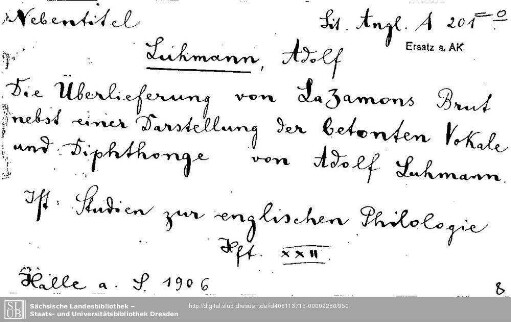 Nebentitel
Lit. Angl. A 201 - 0
Ersatz a. AK
Luhmann, Adolf
Die Überlieferung von Laȝamons Brut
nebst einer Darstellung der betonten Vokale
und Diphthonge von Adolf Luhmann.
Ist: Studien zur englischen Philologie
Hft. XXII
Halle a. S. 1906
8
Sächsische Landesbibliothek –
Staats- und Universitätsbibliothek Dresden